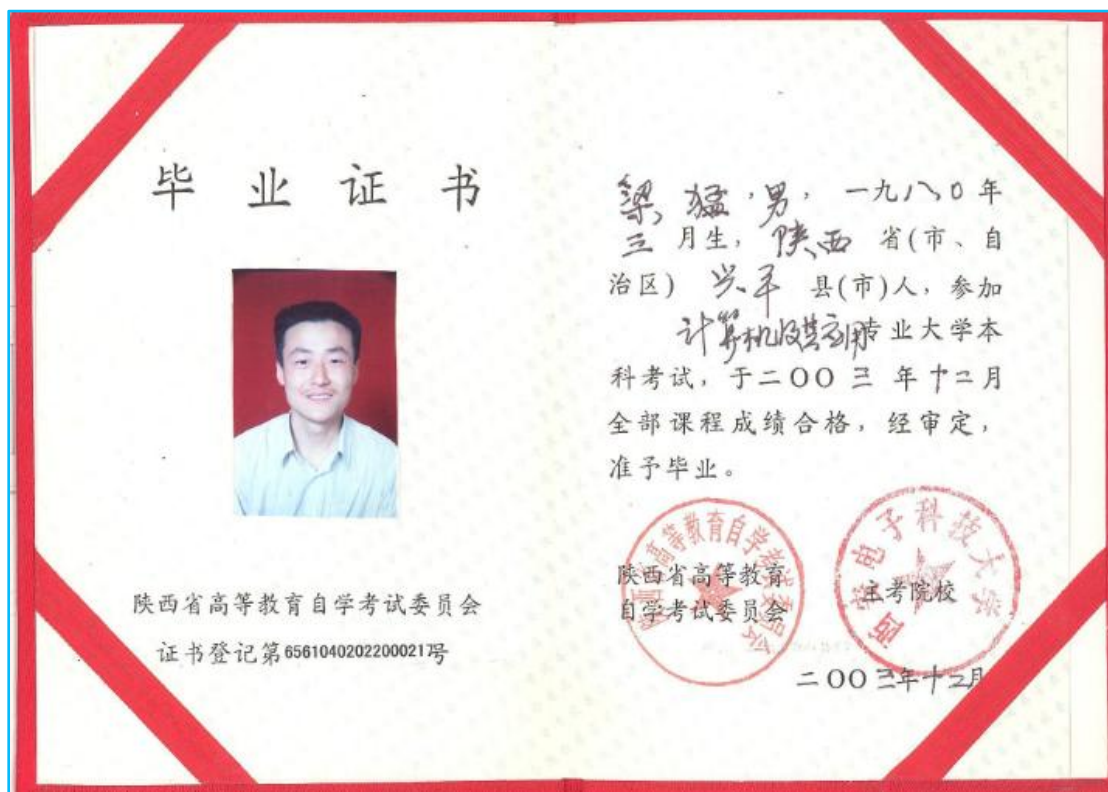 毕业证书
陕西省高等教育自学考试委员会
证书登记第6561040202200021号
梁猛,男,一九八〇年
三月生,陕西省(市、自
治区)兴平县(市)人,参加
计算机及其应用专业大学本
科考试,于二〇〇三年十二月
全部课程成绩合格,经审定,
准予毕业。
陕西省高等教育自学考试委员会
陕西省高等教育
自学考试委员会
西安电子科技大学
主考院校
二〇〇三年十二月